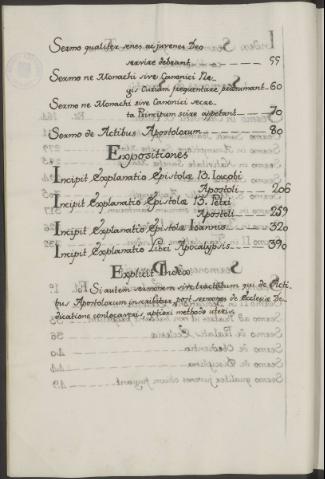 Sermo qualiter senes ac juvenes Deo
servire debeant 55
Sermo ne Monachi sive Canonici Re-
gis Curiam frequentare præsumant 60
Sermo ne Monachi sive Canonici secre-
ta Principum scire appetant 70
Sermo de Actibus Apostolorum 80
Expositiones
Incipit Explanatio Epistolæ B. Iacobi
Apostoli 206
Incipit Explanatio Epistolæ B. Petri
Apostoli 259
Incipit Explanatio Epistolæ Ioannis 320
Incipit Explanatio Libri Apocalypsis 390
Explicit Index
Si autem sermonem sive tractatum qui de Acti-
bus Apostolorum inscribitur post sermones de Ecclesiæ De-
dicatione conlocaveris, aptiori methodo uteris.